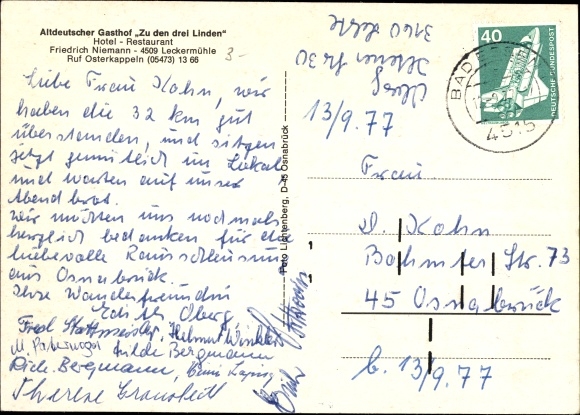 Altdeutscher Gasthof „Zu den drei Linden"
Hotel - Restaurant
Friedrich Niemann - 4509 Leckermühle
Ruf Osterkappeln (05473) 13 66
3-
Liebe Frau Kohn, wir
haben die 32 km gut
überstanden, und sitzen
jetzt gemütlich im Lokal
und warten auf unser
Abendbrot.
Wir möchten uns nochmals
herzlich bedanken für die
liebevolle
aus Osnabrück.
Ihre Wanderfreundin
Edith Oberg
Fred Helmut Winkler
M. Hilde Bergmann
Bergmann,
Therese
Foto Lichtenberg, D-45 Osnabrück
Oberg
Nr 30
3160 Lehrte
13/9.77
40
DEUTSCHE BUNDESPOST
BAD ESSEN
4515
Frau
D. Kohn
Bohmter Str. 73
45 Osnabrück
b. 13/9.77